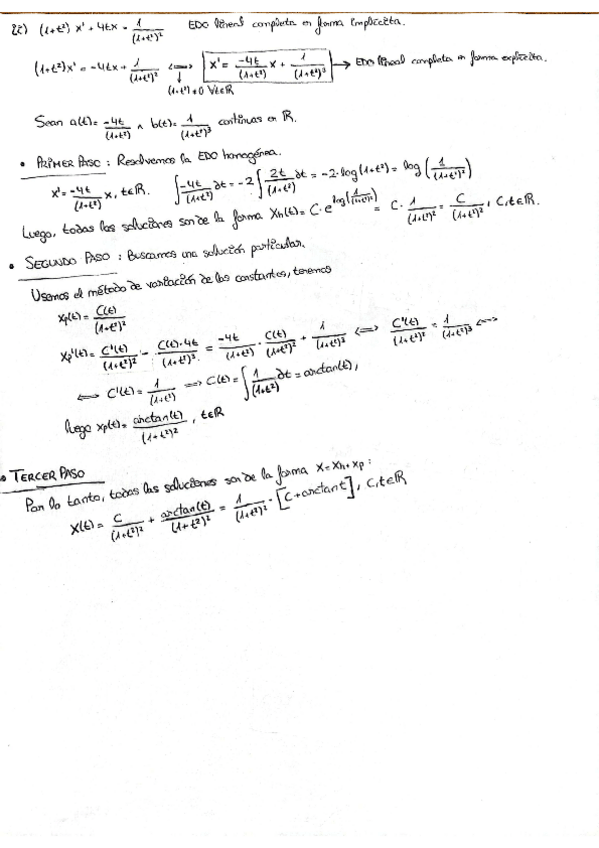 2c) (1+t²) x' + 4tx = 1/(1+t²)² EDO lineal completa en forma implícita.
(1+t²)x' = -4tx + 1/(1+t²)² ⟺ x' = -4t/(1+t²) x + 1/(1+t²)³ → EDO lineal completa en forma explícita.
(1+t²)≠0 ∀t∈ℝ
Sean a(t) = -4t/(1+t²) ∧ b(t) = 1/(1+t²)³ continuas en ℝ.
• PRIMER PASO : Resolvemos la EDO homogénea.
x' = -4t/(1+t²) x, t∈ℝ. ∫ -4t/(1+t²) ∂t = -2 ∫ 2t/(1+t²) ∂t = -2·log(1+t²) = log(1/(1+t²)²)
Luego, todas las soluciones son de la forma Xh(t) = C·e^log(1/(1+t²)²) = C · 1/(1+t²)² = C/(1+t²)², C,t∈ℝ.
• SEGUNDO PASO : Buscamos una solución particular.
Usemos el método de variación de las constantes, tenemos
Xp(t) = C(t)/(1+t²)²
Xp'(t) = C'(t)/(1+t²)² - C(t)·4t/(1+t²)³ = -4t/(1+t²) · C(t)/(1+t²)² + 1/(1+t²)³ ⟺ C'(t)/(1+t²)² = 1/(1+t²)³ ⟺
⟺ C'(t) = 1/(1+t²) ⟹ C(t) = ∫ 1/(1+t²) ∂t = arctan(t),
luego xp(t) = arctan(t)/(1+t²)², t∈ℝ
• TERCER PASO
Por lo tanto, todas las soluciones son de la forma X = Xh + Xp :
X(t) = C/(1+t²)² + arctan(t)/(1+t²)² = 1/(1+t²)² · [C + arctan t], C,t∈ℝ